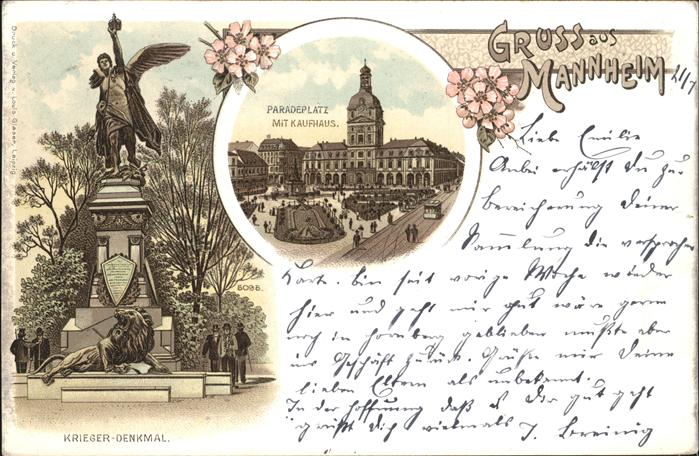 GRUSS aus
MANNHEIM
21/7
PARADEPLATZ
MIT KAUFHAUS.
Druck u. Verlag v. Louis Glaser, Leipzig.
5095.
KRIEGER-DENKMAL.
Liebe Emilie
Anbei erhälst du zur
bereicherung deiner
Sammlung die versprochene
Karte. bin seit vorige Woche wieder
hier und geht mir gut wäre gerne
noch in Homberg geblieben mußte aber
ins Geschäft zurück. Grüße mir deine
lieben Eltern als unbekannt.
In der Hoffnung daß es Dir gut geht
grüßt Dich vielmals J.